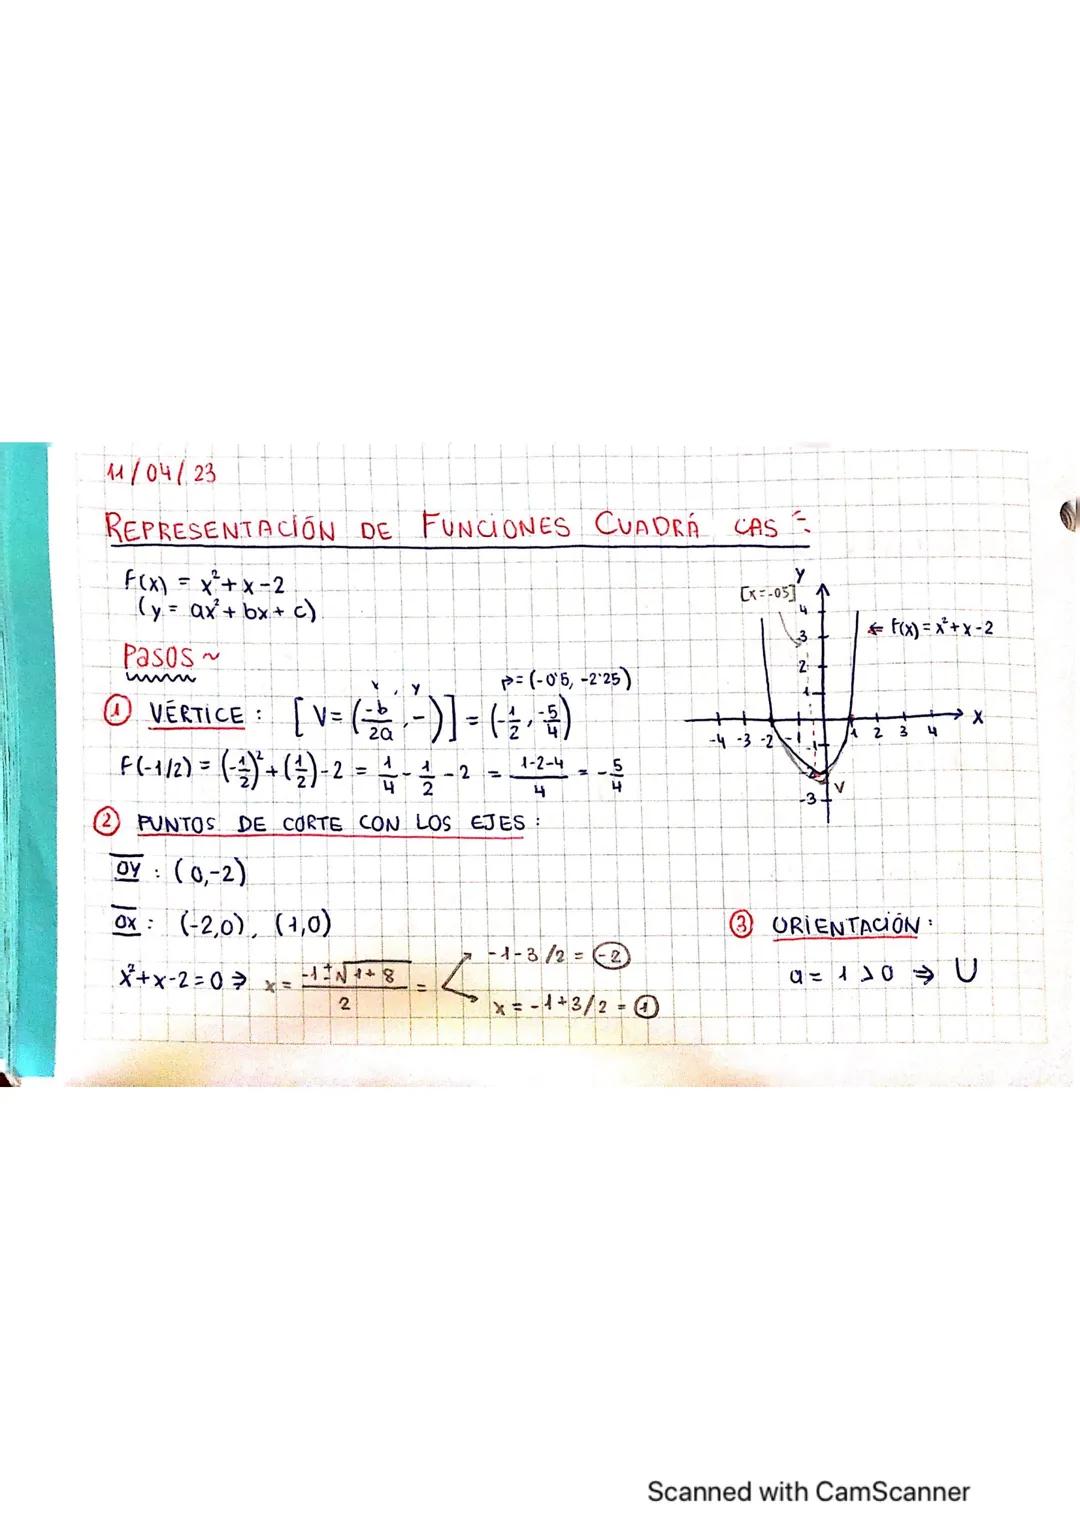 11/04/23
REPRESENTACIÓN DE FUNCIONES CUADRÁ CAS =
F(x) = x²+x-2
(y = ax²+bx+c)
Pasos ~
① VÉRTICE : [V=(-b/2a, -)] = (-1/2, -5/4)
x , y
p=(-0'5, -2'25)
F(-1/2) = (-1/2)²+(1/2)-2 = 1/4 - 1/2 - 2 = 1-2-4/4 = -5/4
② PUNTOS DE CORTE CON LOS EJES :
OY : (0,-2)
OX : (-2,0), (1,0)
x²+x-2=0 ⇒ x = -1±√1+8/2 =
-1-3/2 = -2
x = -1+3/2 = 1
[x=-05]
Y
4
3
2
1
-4 -3 -2 -1 1 2 3 4 X
-1
-2
-3
V
← F(x)=x²+x-2
③ ORIENTACIÓN :
a = 1 > 0 ⇒ U
Scanned with CamScanner